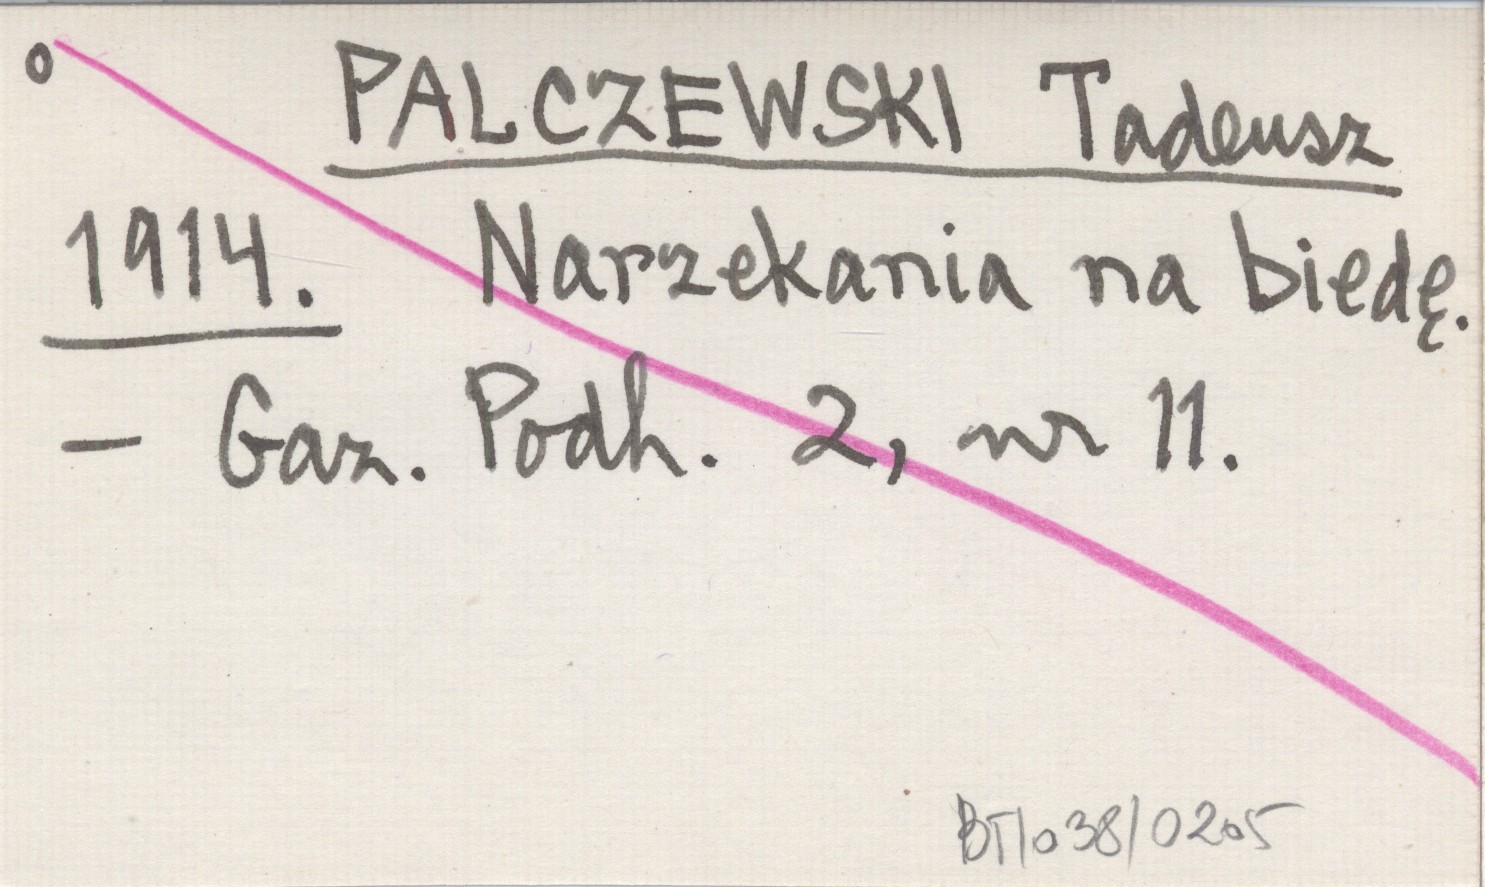 o PALCZEWSKI Tadeusz
1914. Narzekania na biedę.
– Gaz. Podh. 2, nr 11.
BT/038/0205